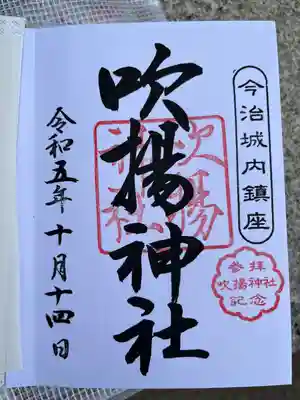 今治城内鎮座
参拝
吹揚神社
記念
吹揚神社
吹揚
神社
令和五年十月十四日